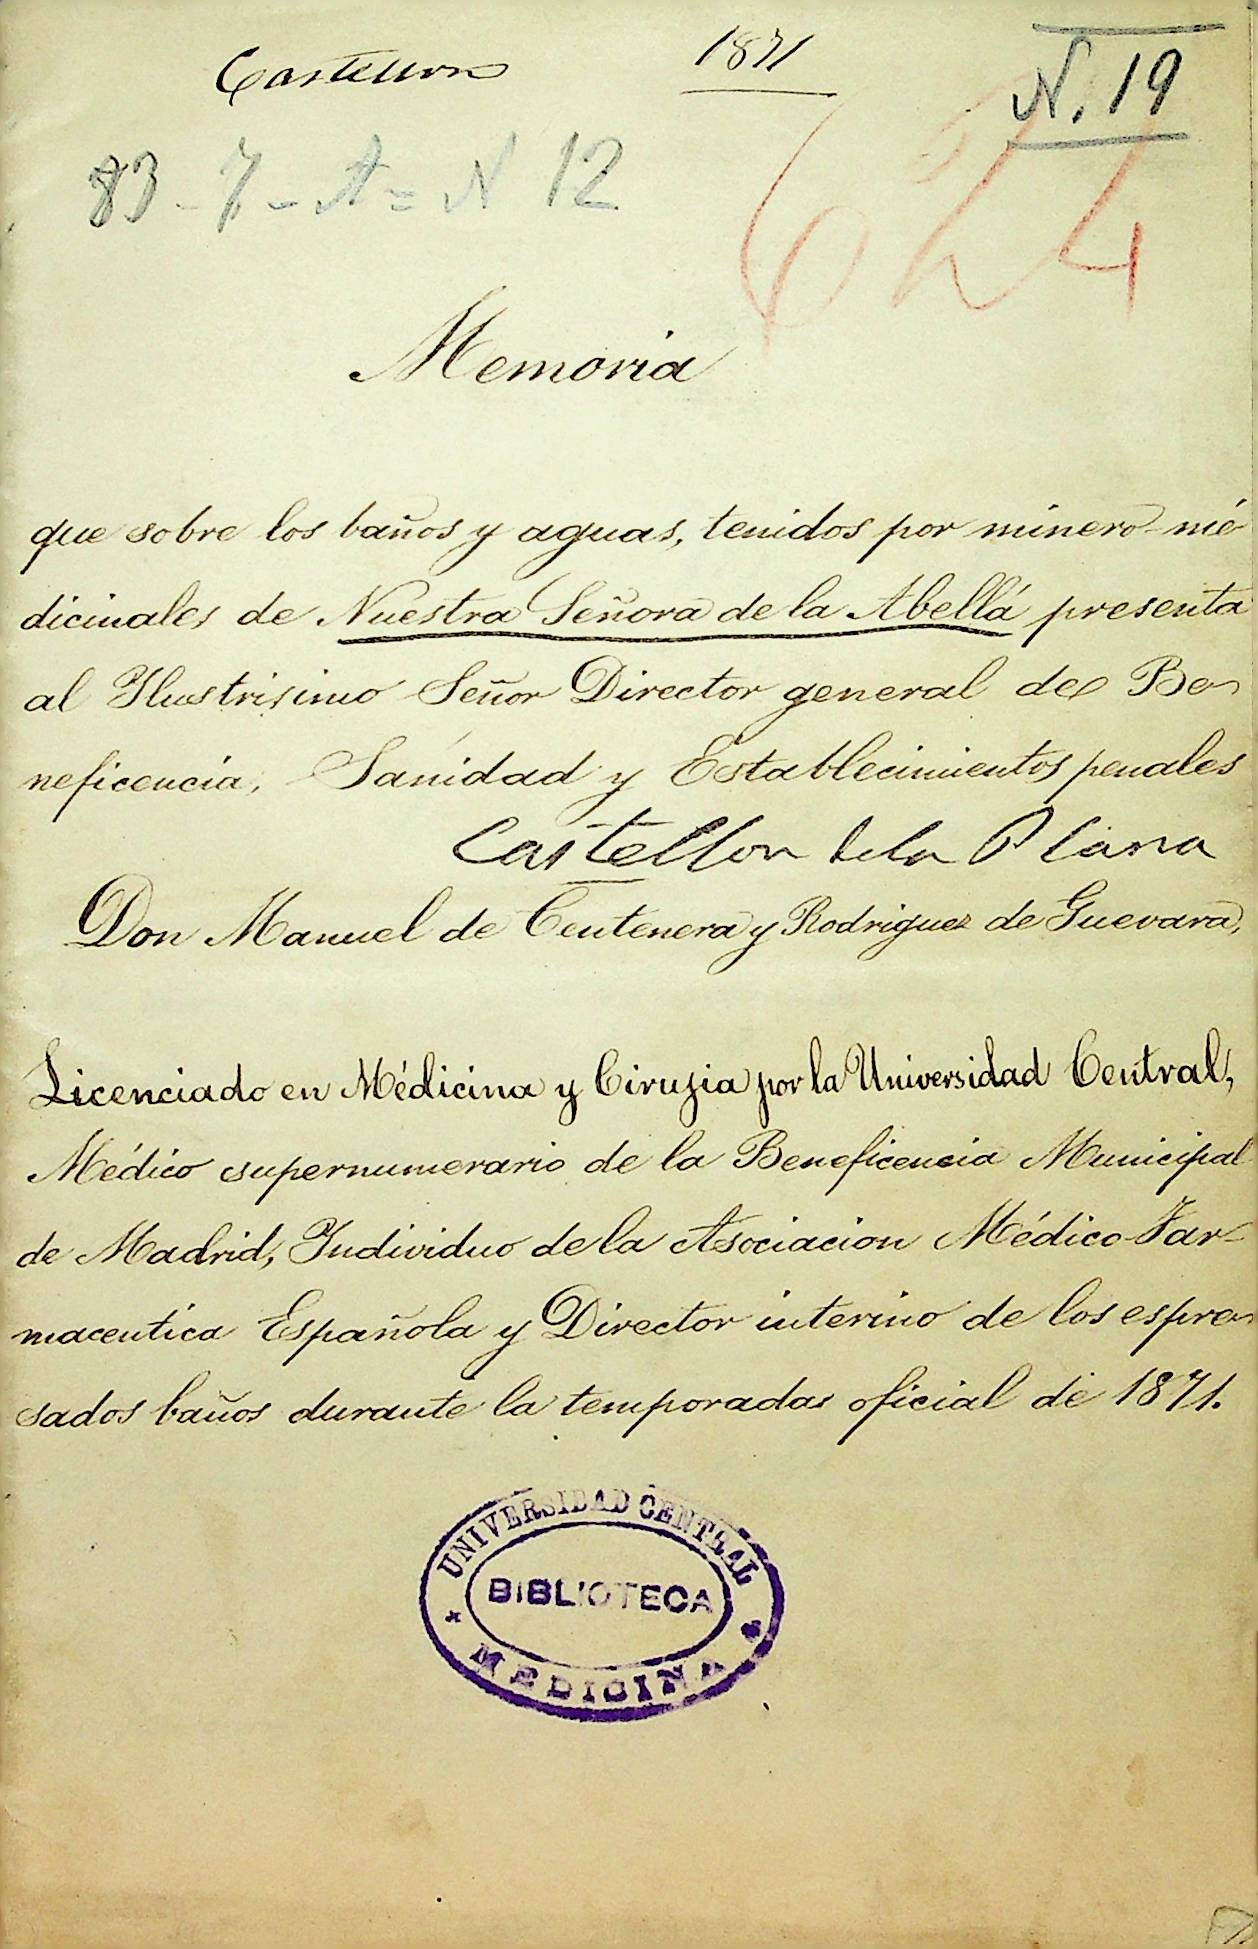 Castellon
1871
N. 19
83-7-A=N 12
624
Memoria
que sobre los baños y aguas, tenidos por minero-mé
dicinales de Nuestra Señora de la Abellá presenta
al Ilustrisimo Señor Director general de Be-
neficencia, Sanidad y Establecimientos penales
Castellon de la Plana
Don Manuel de Centenera y Rodriguez de Guevara,
Licenciado en Médicina y Cirugia por la Universidad Central,
Médico supernumerario de la Beneficencia Municipal
de Madrid, Individuo de la Asociacion Médico-Far-
maceutica Española y Director interino de los espre-
sados baños durante la temporada oficial de 1871.
UNIVERSIDAD CENTRAL
BIBLIOTECA
MEDICINA